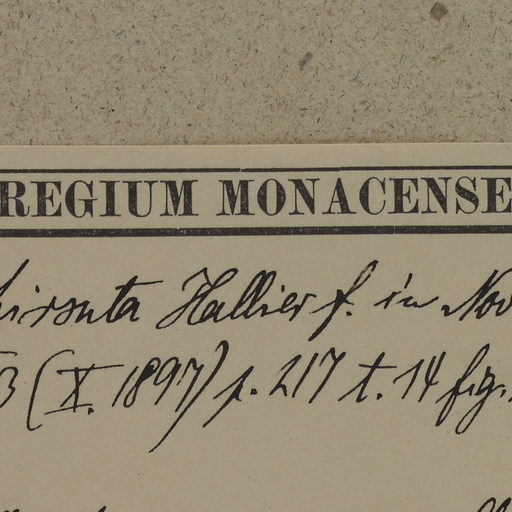 REGIUM MONACENSE
hirsuta Hallier f. in Nov
3 (X. 1897) p. 217 t. 14 fig.